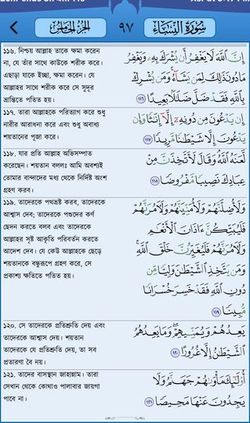 سورة النساء
٩٧
الجزء الخامس
১১৬. নিশ্চয় আল্লাহ তাকে ক্ষমা করেন
না, যে তাঁর সাথে কাউকে শরীক করে।
এছাড়া যাকে ইচ্ছা, ক্ষমা করেন। যে
আল্লাহর সাথে শরীক করে সে সুদূর
ভ্রান্তিতে পতিত হয়।
إِنَّ ٱللَّهَ لَا يَغْفِرُ أَن يُشْرَكَ بِهِۦ وَيَغْفِرُ
مَا دُونَ ذَٰلِكَ لِمَن يَشَآءُ ۚ وَمَن يُشْرِكْ
بِٱللَّهِ فَقَدْ ضَلَّ ضَلَٰلًۢا بَعِيدًا ١١٦
১১৭. তারা আল্লাহকে পরিত্যাগ করে শুধু
নারীর আরাধনা করে এবং শুধু অবাধ্য
শয়তানের পূজা করে।
إِن يَدْعُونَ مِن دُونِهِۦٓ إِلَّآ إِنَٰثًا وَإِن
يَدْعُونَ إِلَّا شَيْطَٰنًا مَّرِيدًا ١١٧
১১৮. যার প্রতি আল্লাহ অভিসম্পাত
করেছেন। শয়তান বললঃ আমি অবশ্যই
তোমার বান্দাদের মধ্য থেকে নির্দিষ্ট অংশ
গ্রহণ করব।
لَّعَنَهُ ٱللَّهُ ۘ وَقَالَ لَأَتَّخِذَنَّ مِنْ
عِبَادِكَ نَصِيبًا مَّفْرُوضًا ١١٨
১১৯. তাদেরকে পথভ্রষ্ট করব, তাদেরকে
আশ্বাস দেব; তাদেরকে পশুদের কর্ণ
ছেদন করতে বলব এবং তাদেরকে
আল্লাহর সৃষ্ট আকৃতি পরিবর্তন করতে
আদেশ দেব। যে কেউ আল্লাহকে ছেড়ে
শয়তানকে বন্ধুরূপে গ্রহণ করে, সে
প্রকাশ্য ক্ষতিতে পতিত হয়।
وَلَأُضِلَّنَّهُمْ وَلَأُمَنِّيَنَّهُمْ وَلَءَامُرَنَّهُمْ
فَلَيُبَتِّكُنَّ ءَاذَانَ ٱلْأَنْعَٰمِ
وَلَءَامُرَنَّهُمْ فَلَيُغَيِّرُنَّ خَلْقَ ٱللَّهِ ۚ
وَمَن يَتَّخِذِ ٱلشَّيْطَٰنَ وَلِيًّا مِّن
دُونِ ٱللَّهِ فَقَدْ خَسِرَ خُسْرَانًا
مُّبِينًا ١١٩
১২০. সে তাদেরকে প্রতিশ্রুতি দেয় এবং
তাদেরকে আশ্বাস দেয়। শয়তান
তাদেরকে যে প্রতিশ্রুতি দেয়, তা সব
প্রতারণা বৈ নয়।
يَعِدُهُمْ وَيُمَنِّيهِمْ ۖ وَمَا يَعِدُهُمُ
ٱلشَّيْطَٰنُ إِلَّا غُرُورًا ١٢٠
১২১. তাদের বাসস্থান জাহান্নাম। তারা
সেখান থেকে কোথাও পালাবার জায়গা
পাবে না।
أُو۟لَٰٓئِكَ مَأْوَىٰهُمْ جَهَنَّمُ وَلَا
يَجِدُونَ عَنْهَا مَحِيصًا ١٢١